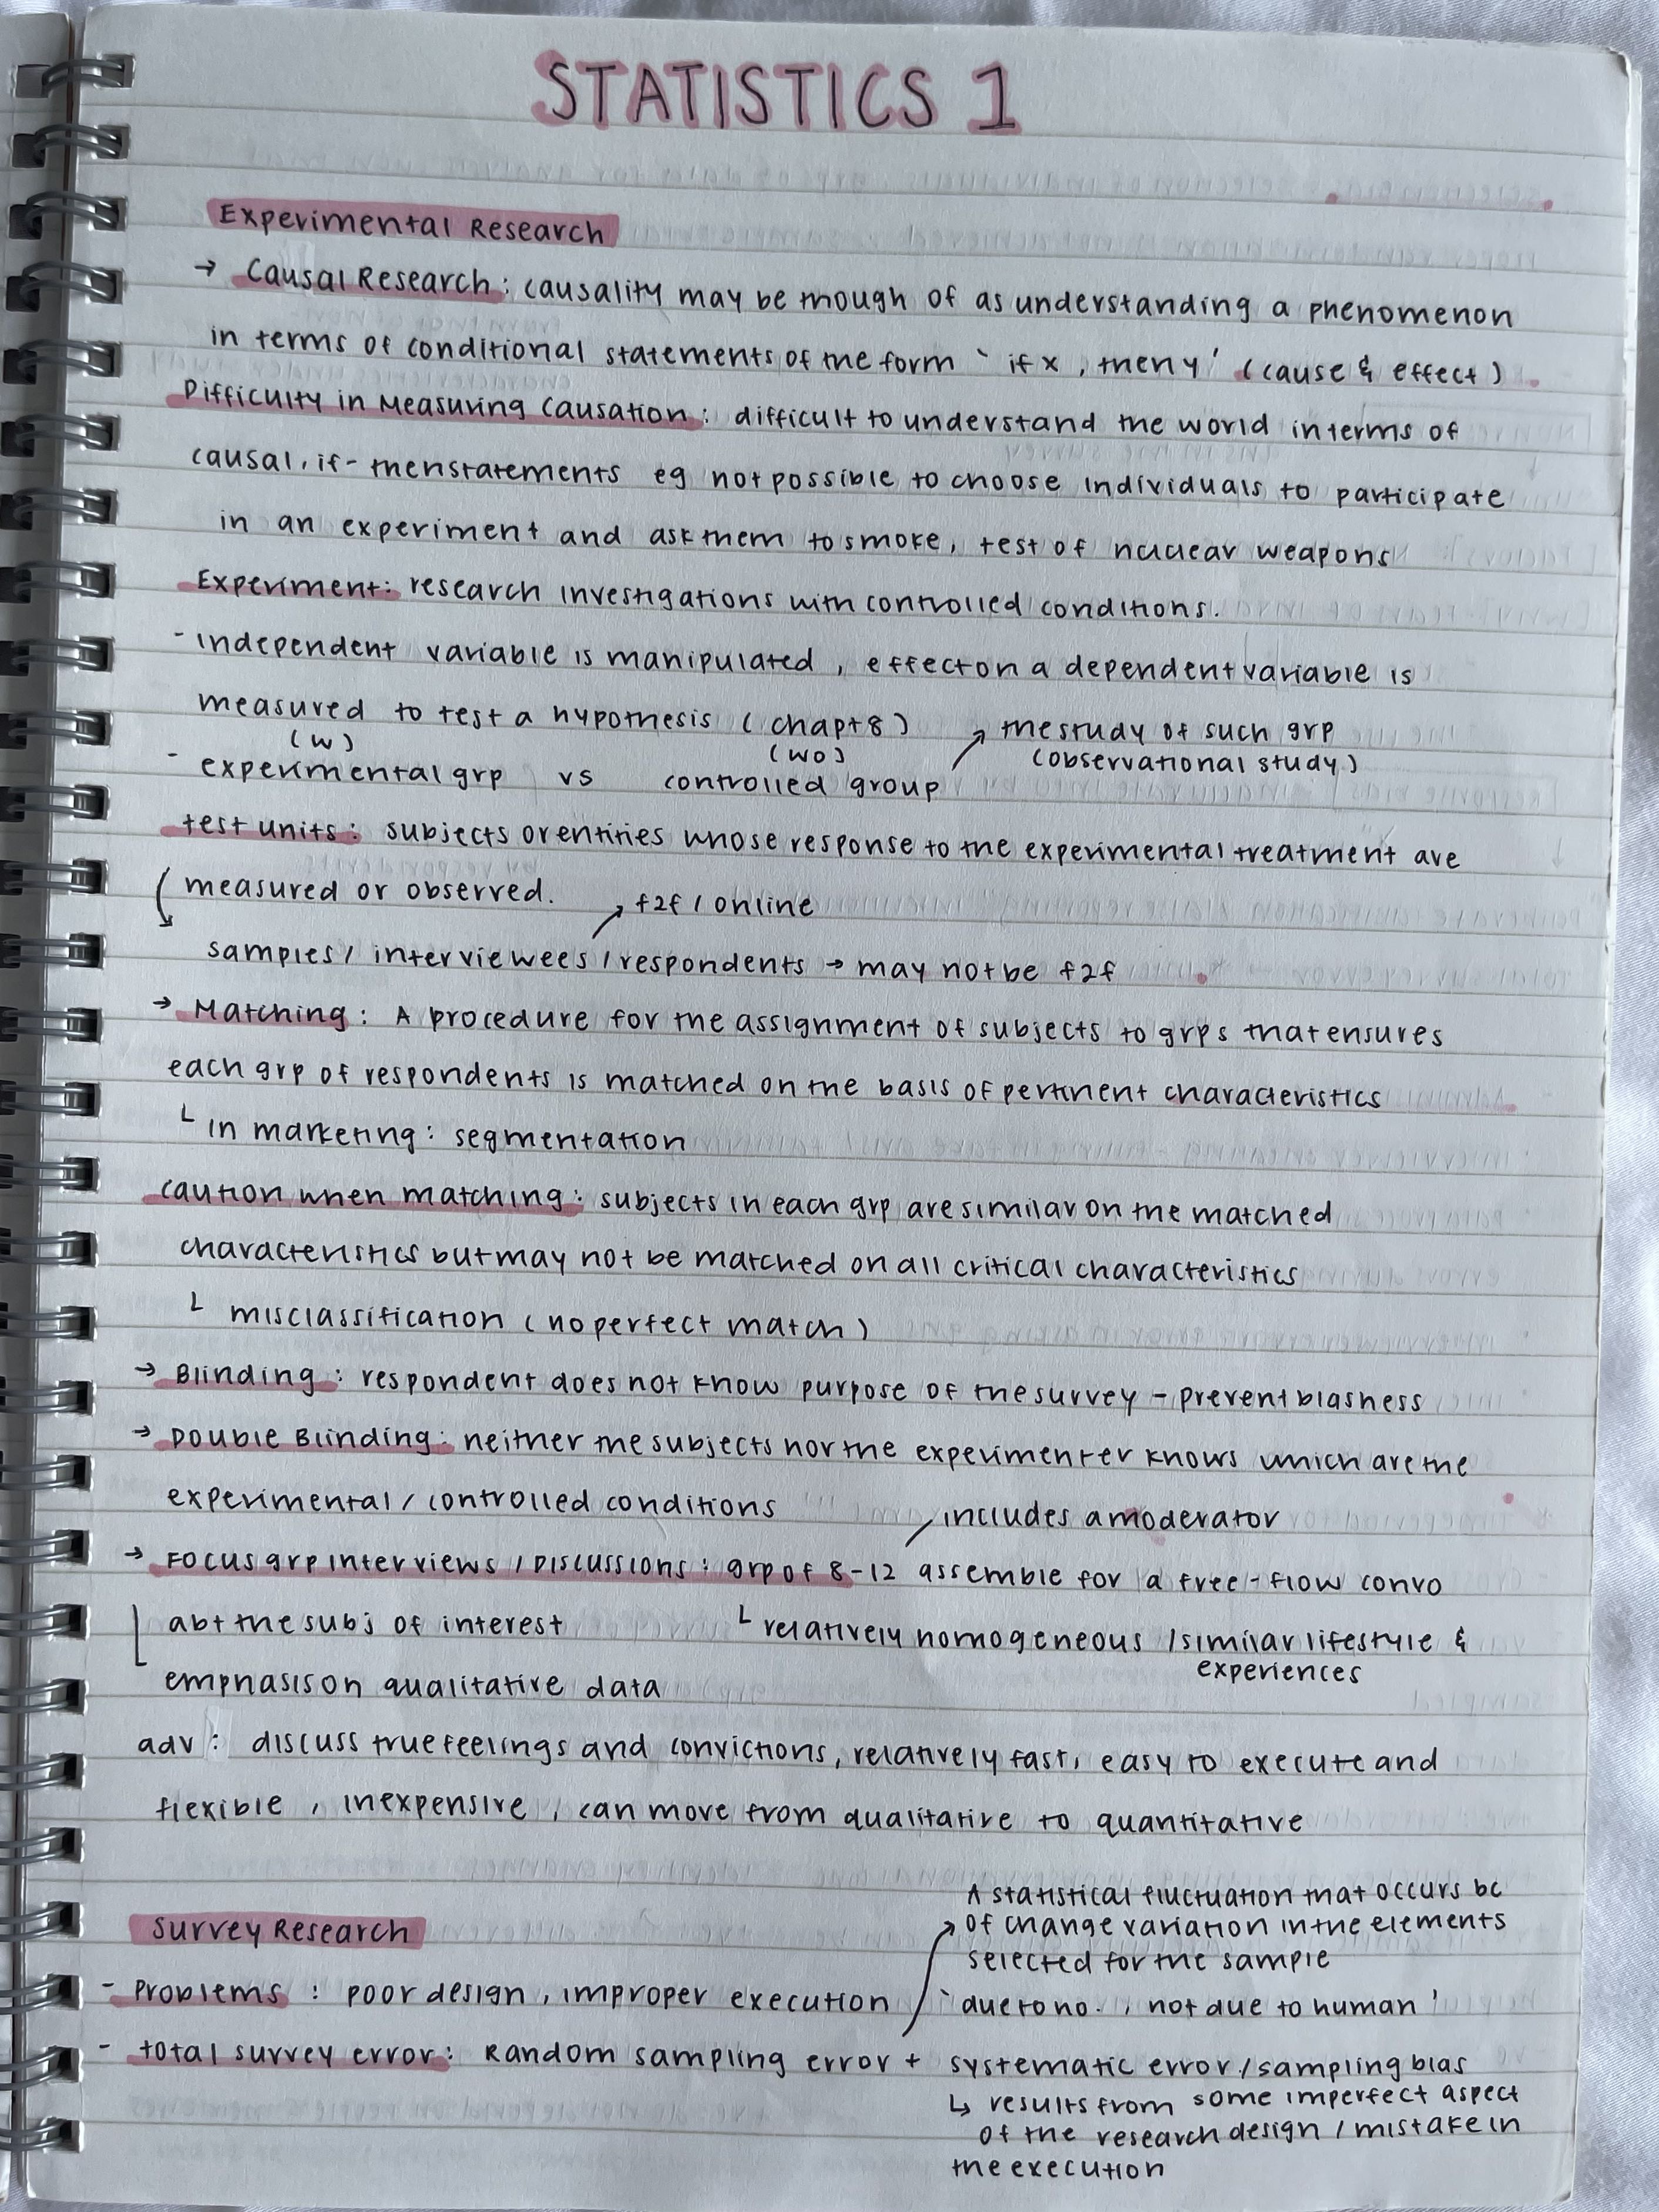 STATISTICS 1
Experimental Research
→ Causal Research : causality may be though of as understanding a phenomenon
in terms of conditional statements of the form ` if x , then y ' ( cause & effect )
Difficulty in Measuring Causation : difficult to understand the world in terms of
causal, if-then statements eg not possible to choose individuals to participate
in an experiment and ask them to smoke, test of nuclear weapons
Experiment: research investigations with controlled conditions.
- independent variable is manipulated , effect on a dependent variable is
measured to test a hypothesis ( chapt 8 )
↗ the study of such grp
(observational study)
(w)
(wo)
- experimental grp vs controlled group
test units : subjects or entities whose response to the experimental treatment are
measured or observed.
↗ f2f / online
samples / interviewees / respondents → may not be f2f
→ Matching : A procedure for the assignment of subjects to grps that ensures
each grp of respondents is matched on the basis of pertinent characteristics
└ in marketing : segmentation
caution when matching : subjects in each grp are similar on the matched
characteristics but may not be matched on all critical characteristics
└ misclassification ( no perfect match )
→ Blinding : respondent does not know purpose of the survey - prevent biasness
→ Double Blinding : neither the subjects nor the experimenter knows which are the
experimental / controlled conditions
includes a moderator
→ Focus grp interviews / Discussions : grp of 8-12 assemble for a free-flow convo
abt the subj of interest
└ relatively homogeneous / similar lifestyle &
experiences
emphasis on qualitative data
adv : discuss true feelings and convictions, relatively fast, easy to execute and
flexible , inexpensive , can move from qualitative to quantitative
Survey Research
A statistical fluctuation that occurs bc
of change variation in the elements
selected for the sample
- Problems : poor design , improper execution
` due to no. , not due to human '
- total survey error : Random sampling error + systematic error / sampling bias
↳ results from some imperfect aspect
of the research design / mistake in
the execution